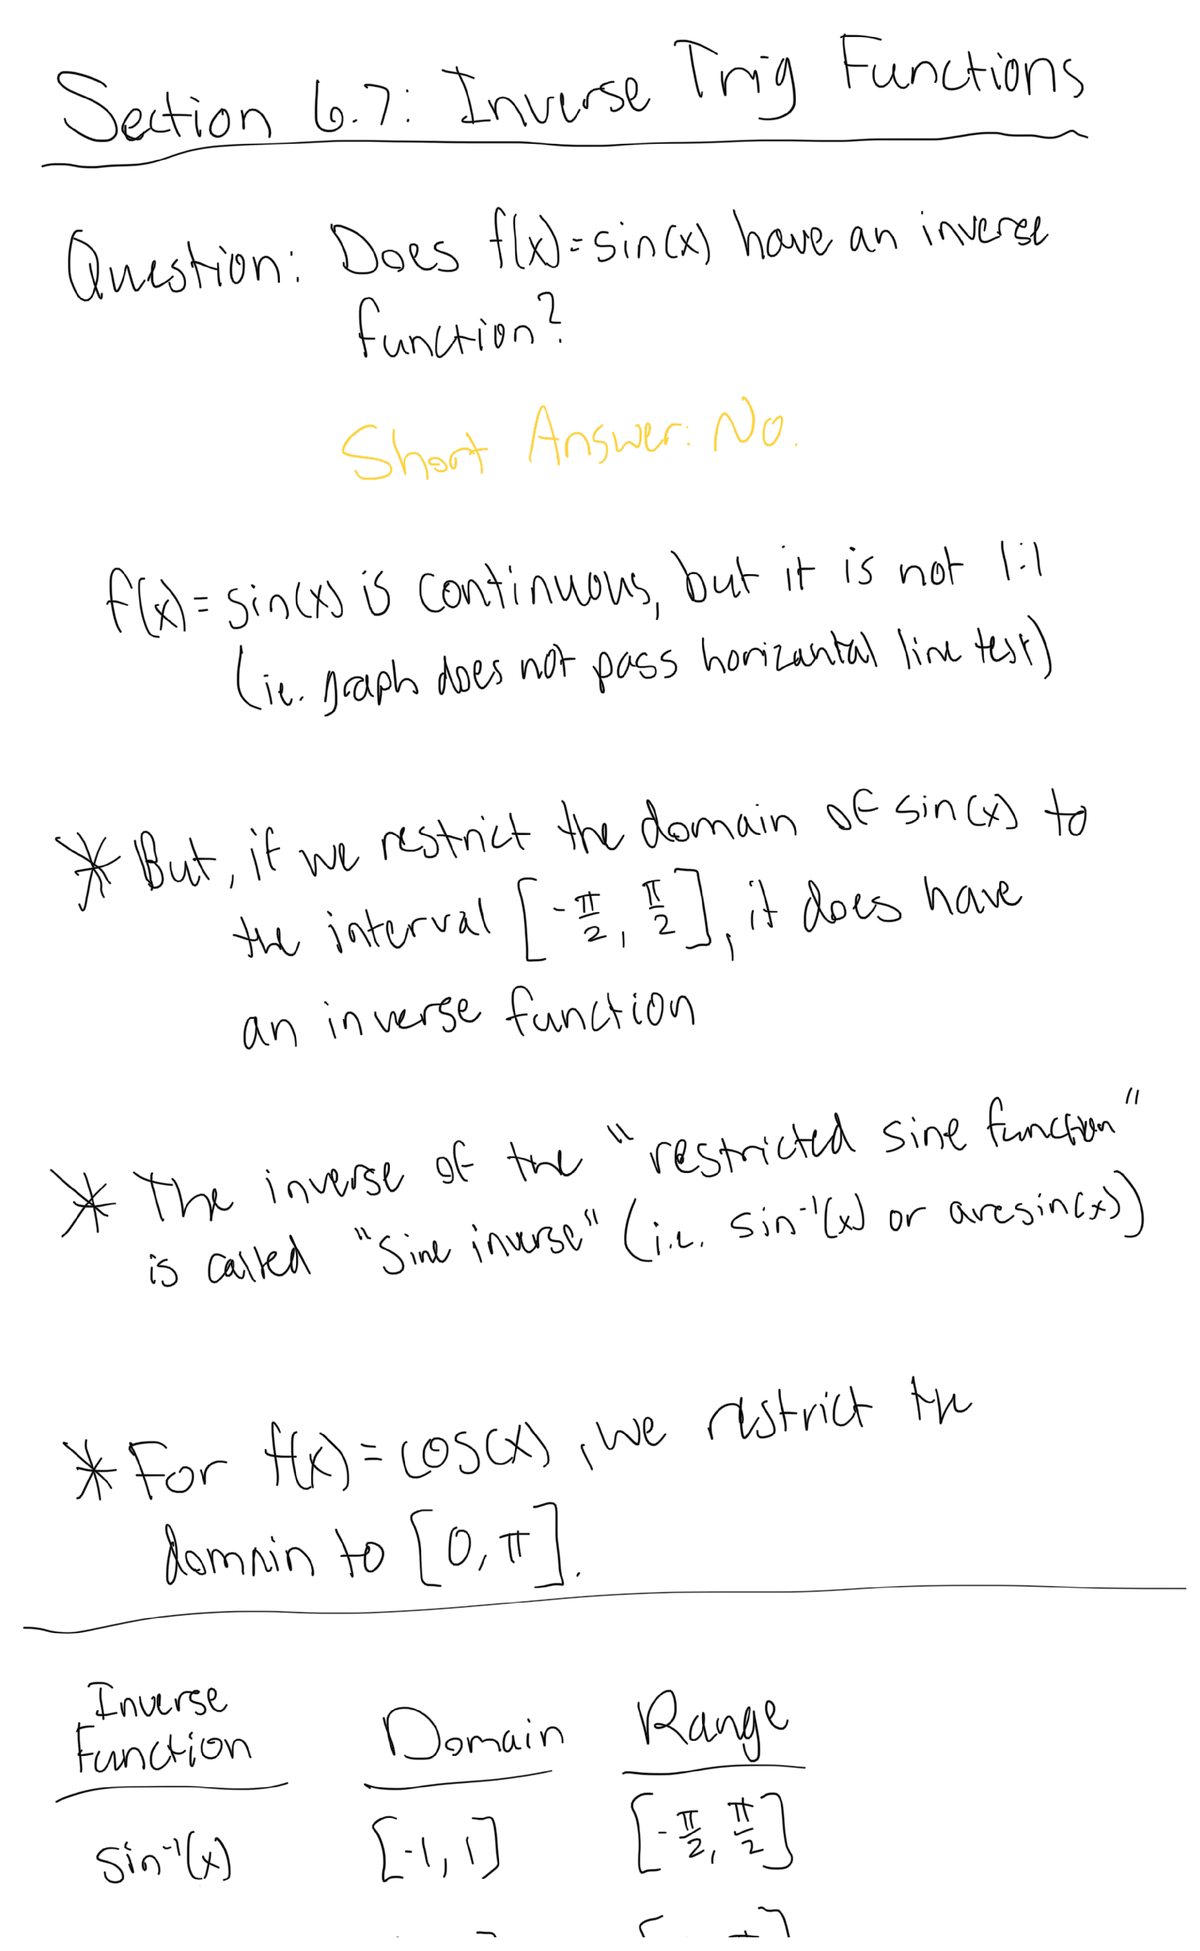 Section 6.7: Inverse Trig Functions
Question: Does f(x)=sin(x) have an inverse
function?
Short Answer: No.
f(x)=sin(x) is continuous, but it is not 1:1
(ie. graph does not pass horizantal line test)
* But, if we restrict the domain of sin(x) to
the interval [-π/2, π/2], it does have
an inverse function
* The inverse of the "restricted sine function"
is called "Sine inverse" (i.e. sin⁻¹(x) or arcsin(x))
* For f(x)=cos(x), we restrict the
domain to [0, π].
Inverse
Function Domain Range
sin⁻¹(x) [-1, 1] [-π/2, π/2]